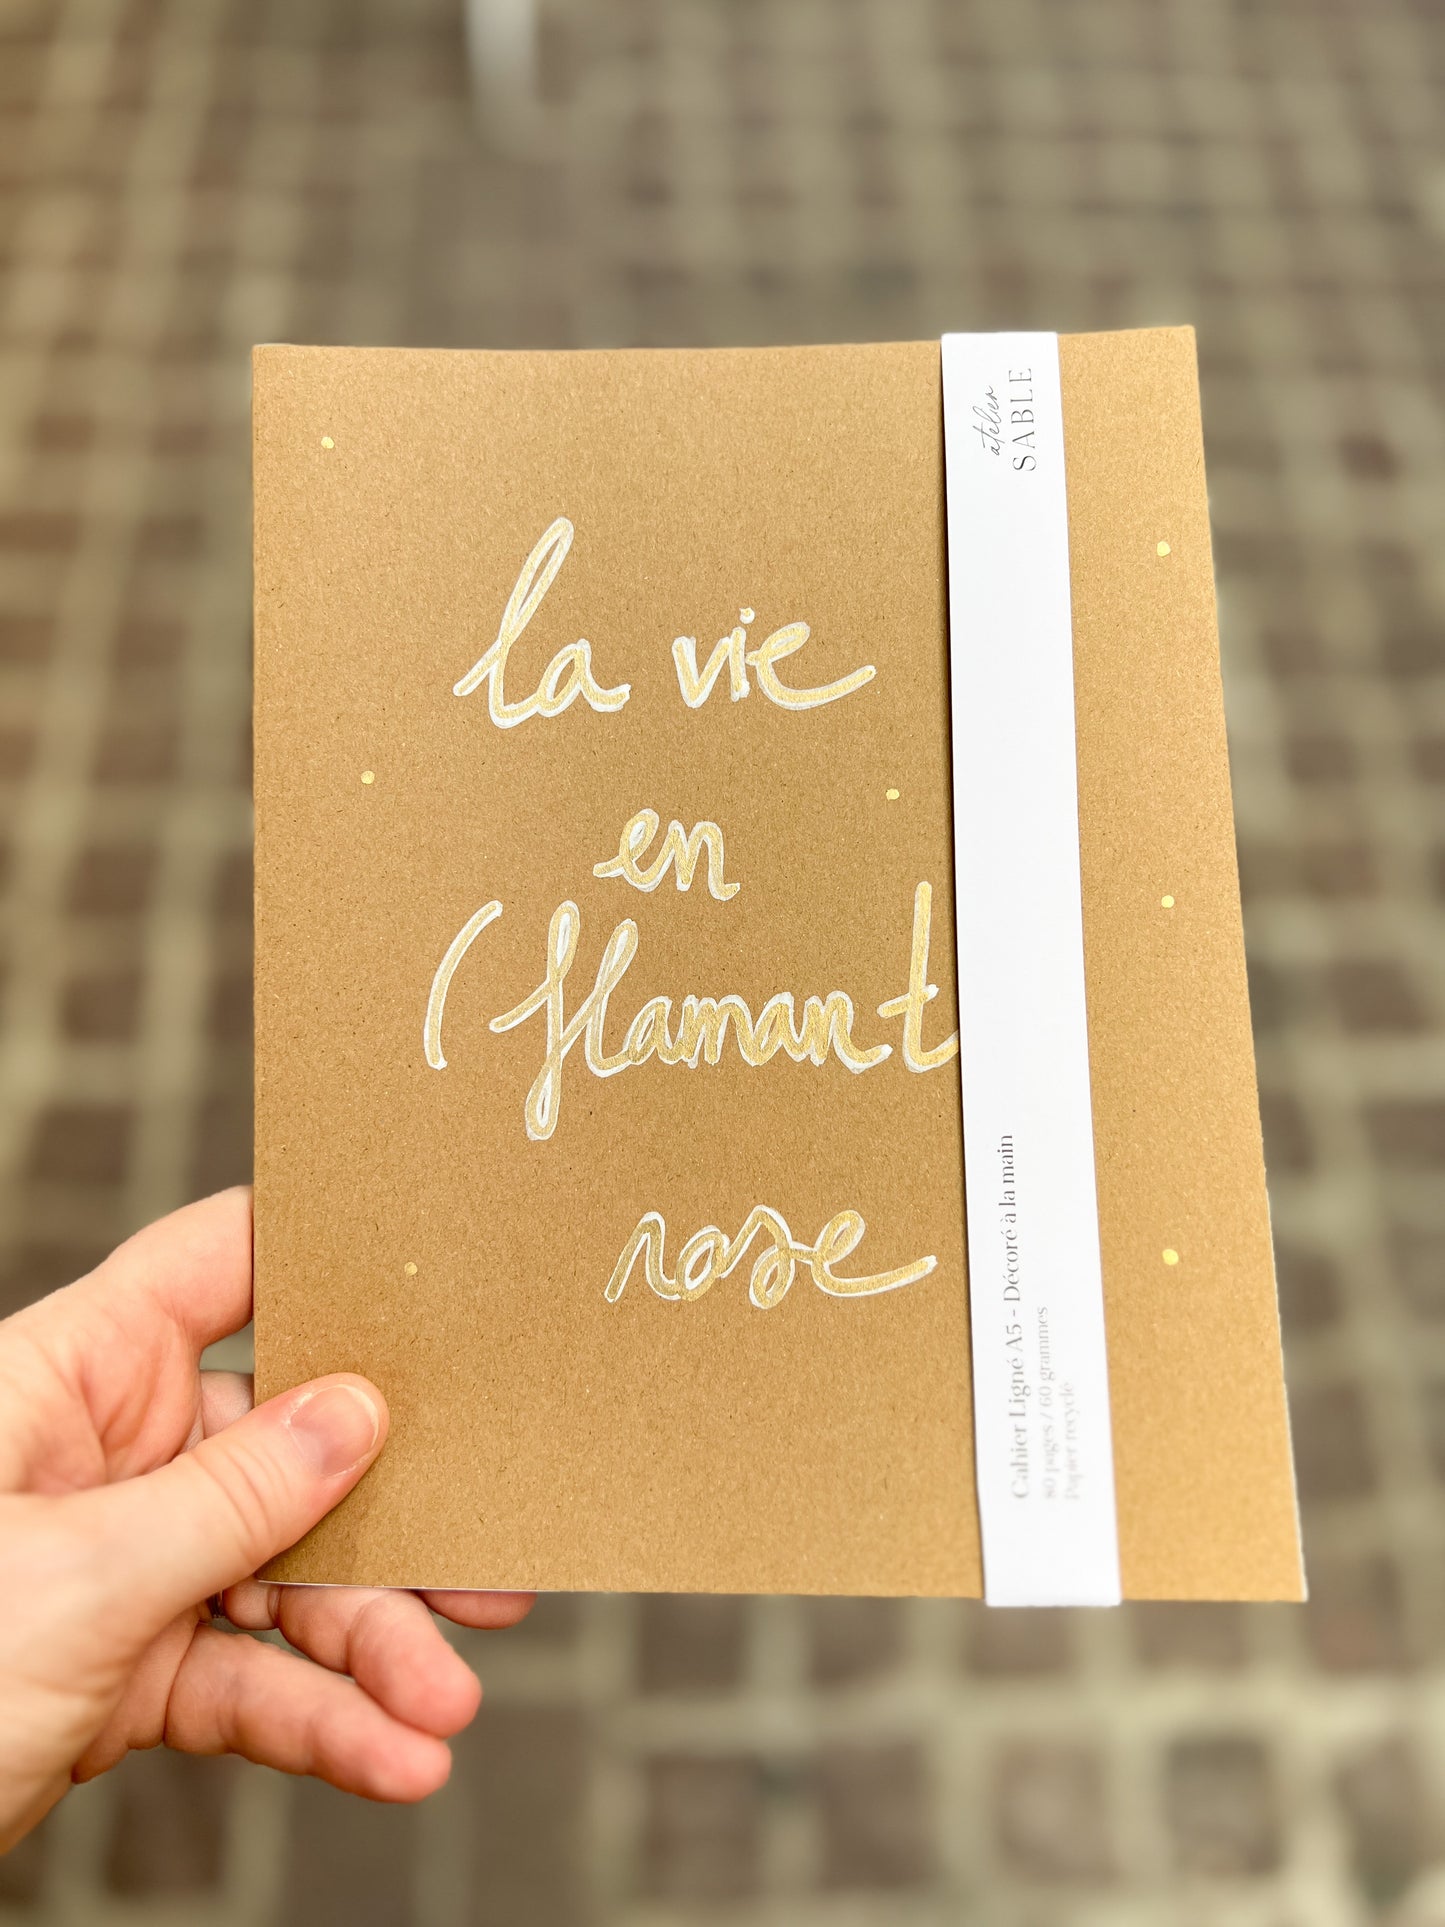 la vie
en
(flamant
rose
atelier
SABLE
Cahier Ligné A5 - Décoré à la main
80 pages / 60 grammes
Papier recyclé